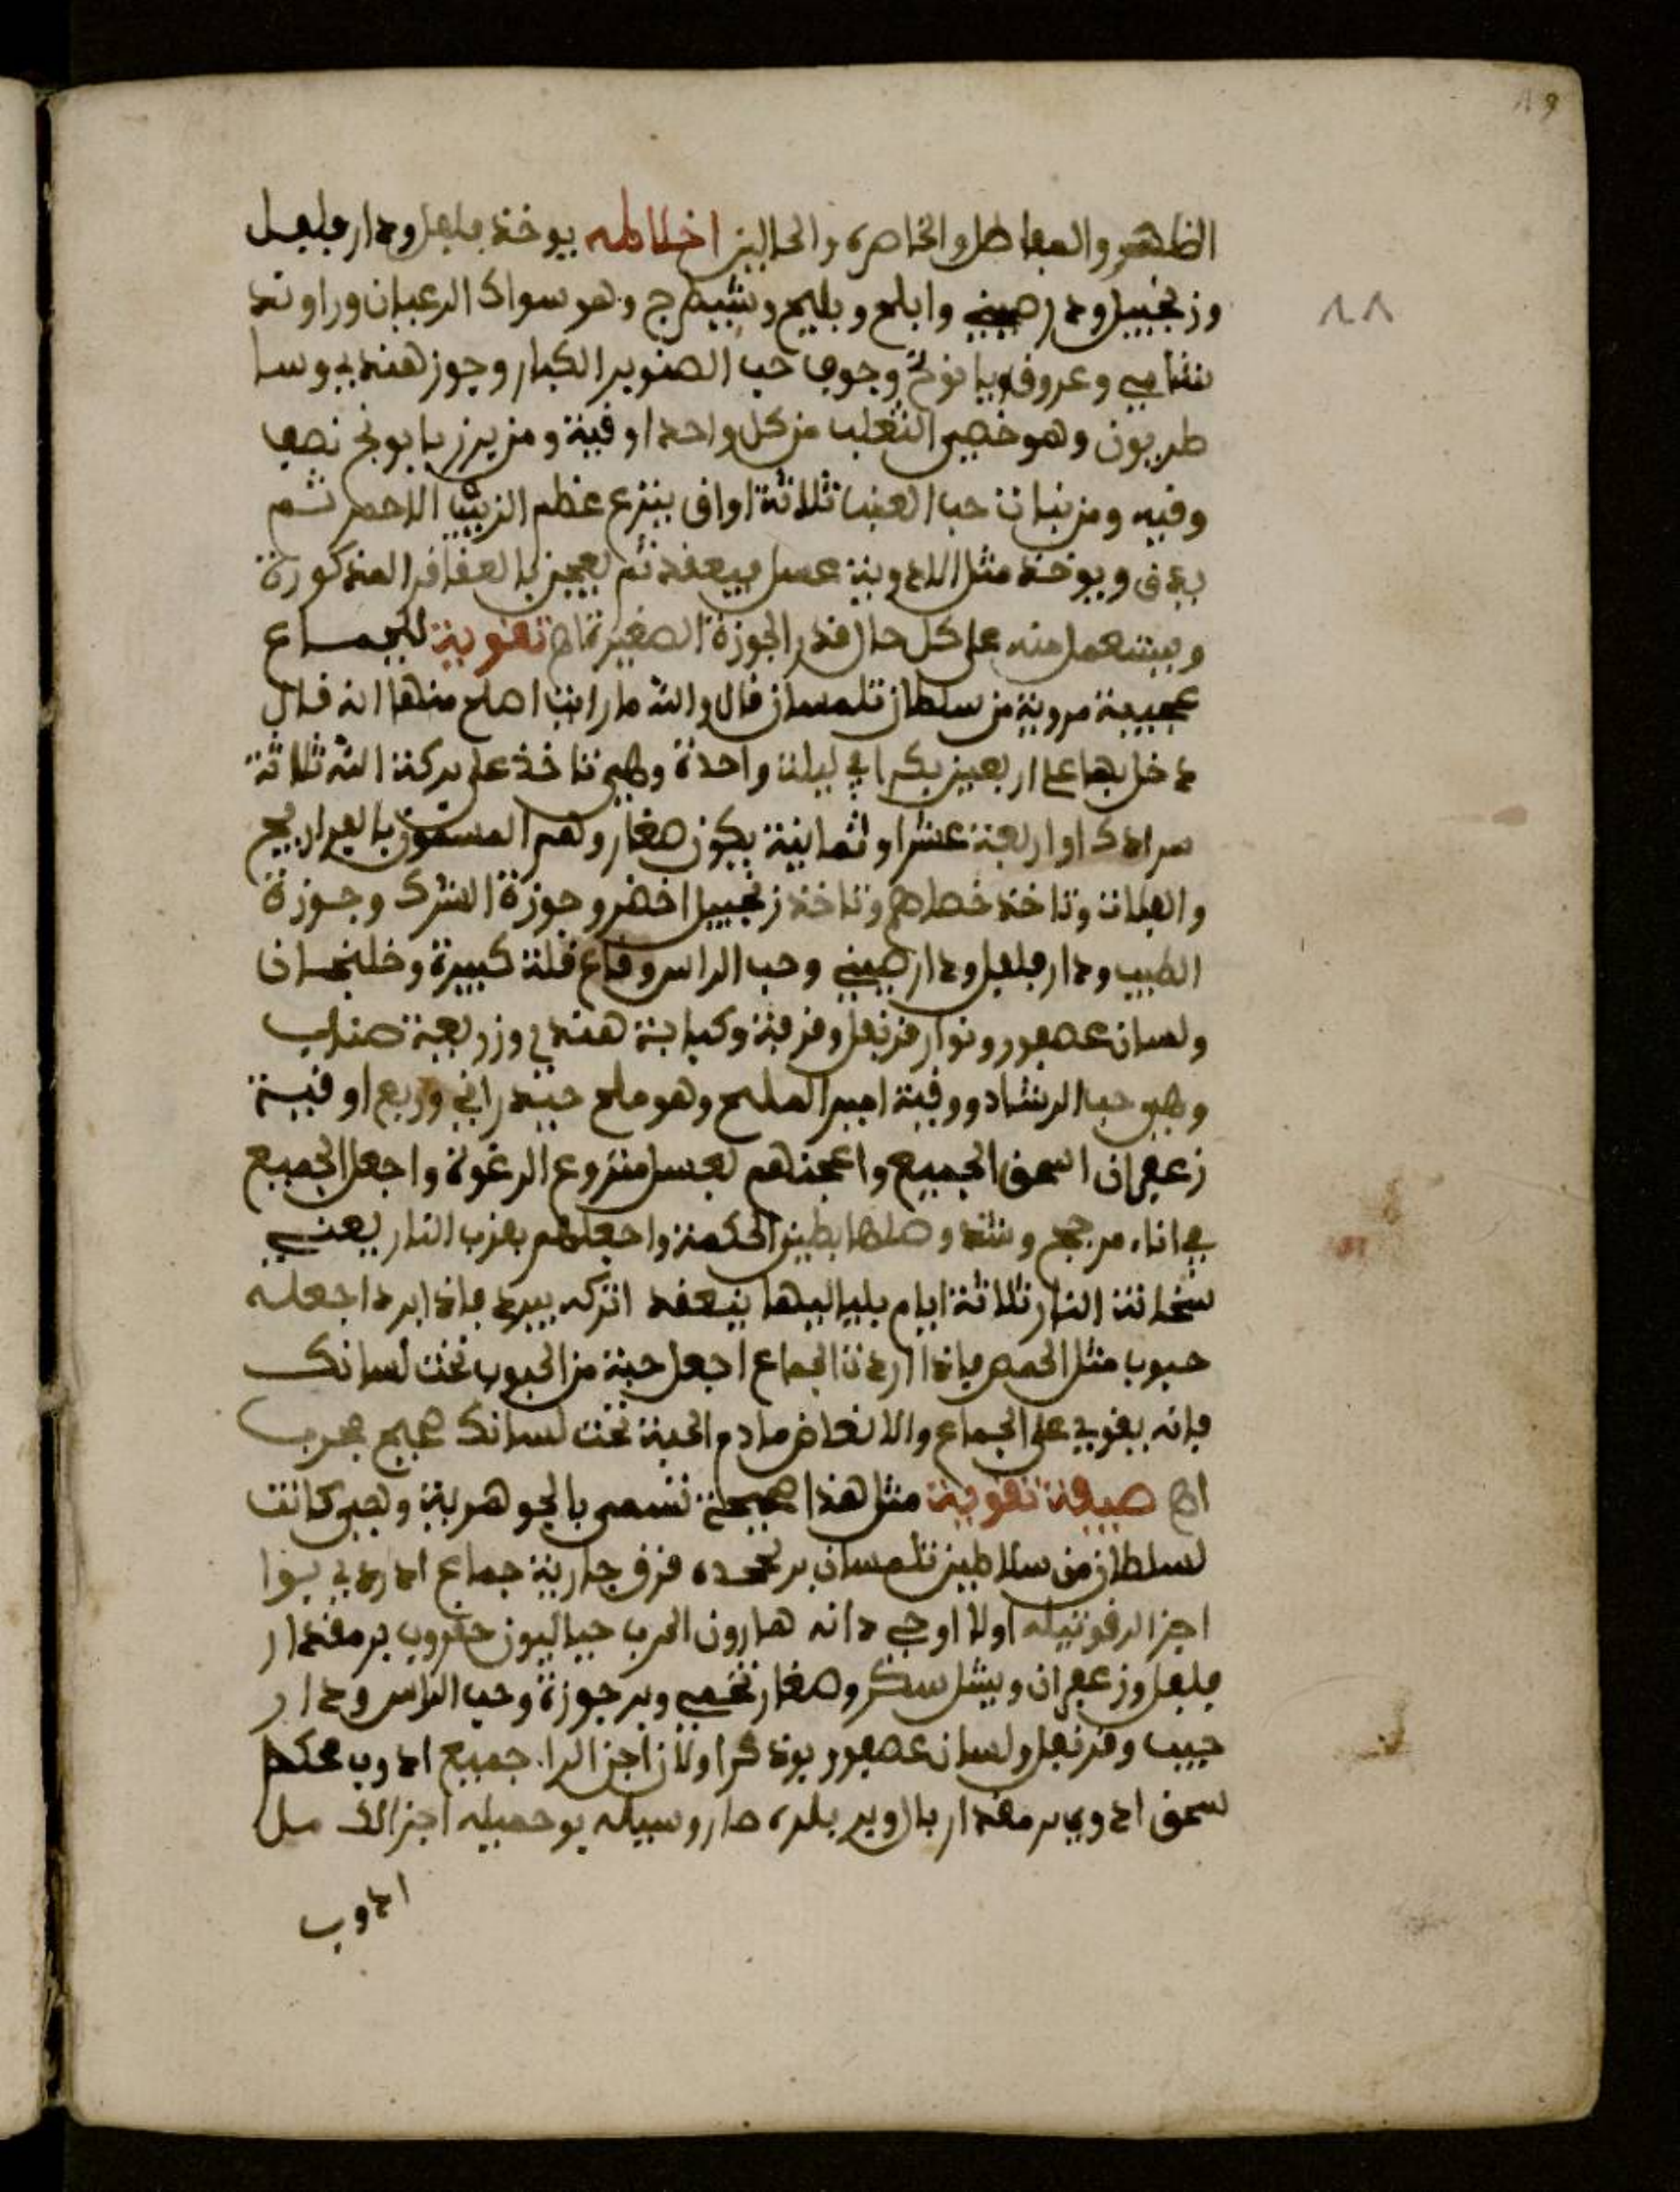 ٨٨
الظهر والمفاصل والخاصرة والحالبين اخلاطه يوخذ فلفل ودار فلفل
وزنجبيل ودار صيني وابلج وبليج وشيطرج وهو سواك الرعيان وراوند
شامي وعروق بابونج وجوف حب الصنوبر الكبار وجوز هندي وسا
طريون وهو خصي الثعلب من كل واحد اوقية ومن بزر بابونج نصف
وقية ومن نبات حب العنب ثلاثة اواق ينزع عظم الزبيب الاحمر ثم
يدق ويوخذ مثل الادوية عسل فيعقد ثم يعجن بالعقاقر المذكورة
ويستعمل منه على كل حال قدر الجوزة الصغيرة اه تقوية للجماع
عجيبة مروية من سلطان تلمسان قال والله ما رايت اصلح منها انه قال
دخل بها على اربعين بكرا في ليلة واحدة وهي تاخذ على بركة الله ثلاثة
سرادك او اربعة عشر او ثمانية يكون صغار وهم المسمون بالفراريج
والفلات وتاخذ خصاهم وتاخذ زنجبيل اخضر وجوزة الشرك وجوزة
الطيب ودار فلفل ودار صيني وحب الراس وقاع قلة كبيرة وخلنجان
ولسان عصفور ونوار قرنفل وقرفة وكبابة هندي وزريعة صناب
وهي حب الرشاد ووقية امير الملح وهو ملح حيدراني وربع اوقية
زعفران اسحق الجميع واعجنهم بعسل منزوع الرغوة واجعل الجميع
في اناء مرجج وشد وصلها بطين الحكمة واجعلهم بقرب النار يعني
سخانة النار ثلاثة ايام بلياليها ينعقد اتركه يبرد فاذا برد اجعله
حبوب مثل الحمص فاذا اردت الجماع اجعل حبة من الحبوب تحت لسانك
فانه يقوي على الجماع والانعاض مادم الحبة تحت لسانك صحيح مجرب
اه صيفة تقوية مثل هذا صحيحة تسمى بالجوهرية وهي كانت
لسلطان من سلاطين تلمسان بر كجده قرق جارية جماع ادردي بوا
اجزالر قوتيله اولا اوجي دانه هارون الحرب جياليون حقروب بر مقدار
فلفل وزعفران وبيتل سكر وصغار تخمي وبر جوزة وحب الراس ودار
جيب وقرنفل ولسان عصفور بوذكر اولان اجزالرا جميع ادوب محكم
سحق ادوب بر مقدار بال وير بلره صاروسيله يوحميله اجزالك مل
ادوب